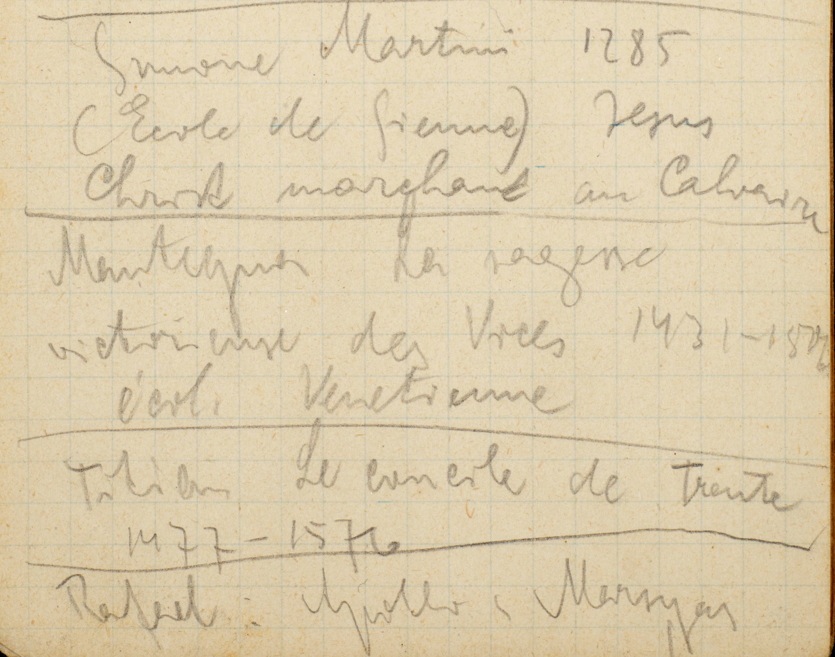 Simone Martini 1285
(Ecole de Sienne) Jesus
Christ marchant au Calvaire
Mantegna La sagesse
victorieuse des Vices 1431-1506
école Venetienne
Titian Le concile de Trente
1477-1576
Rafael: Apollo Marsyas